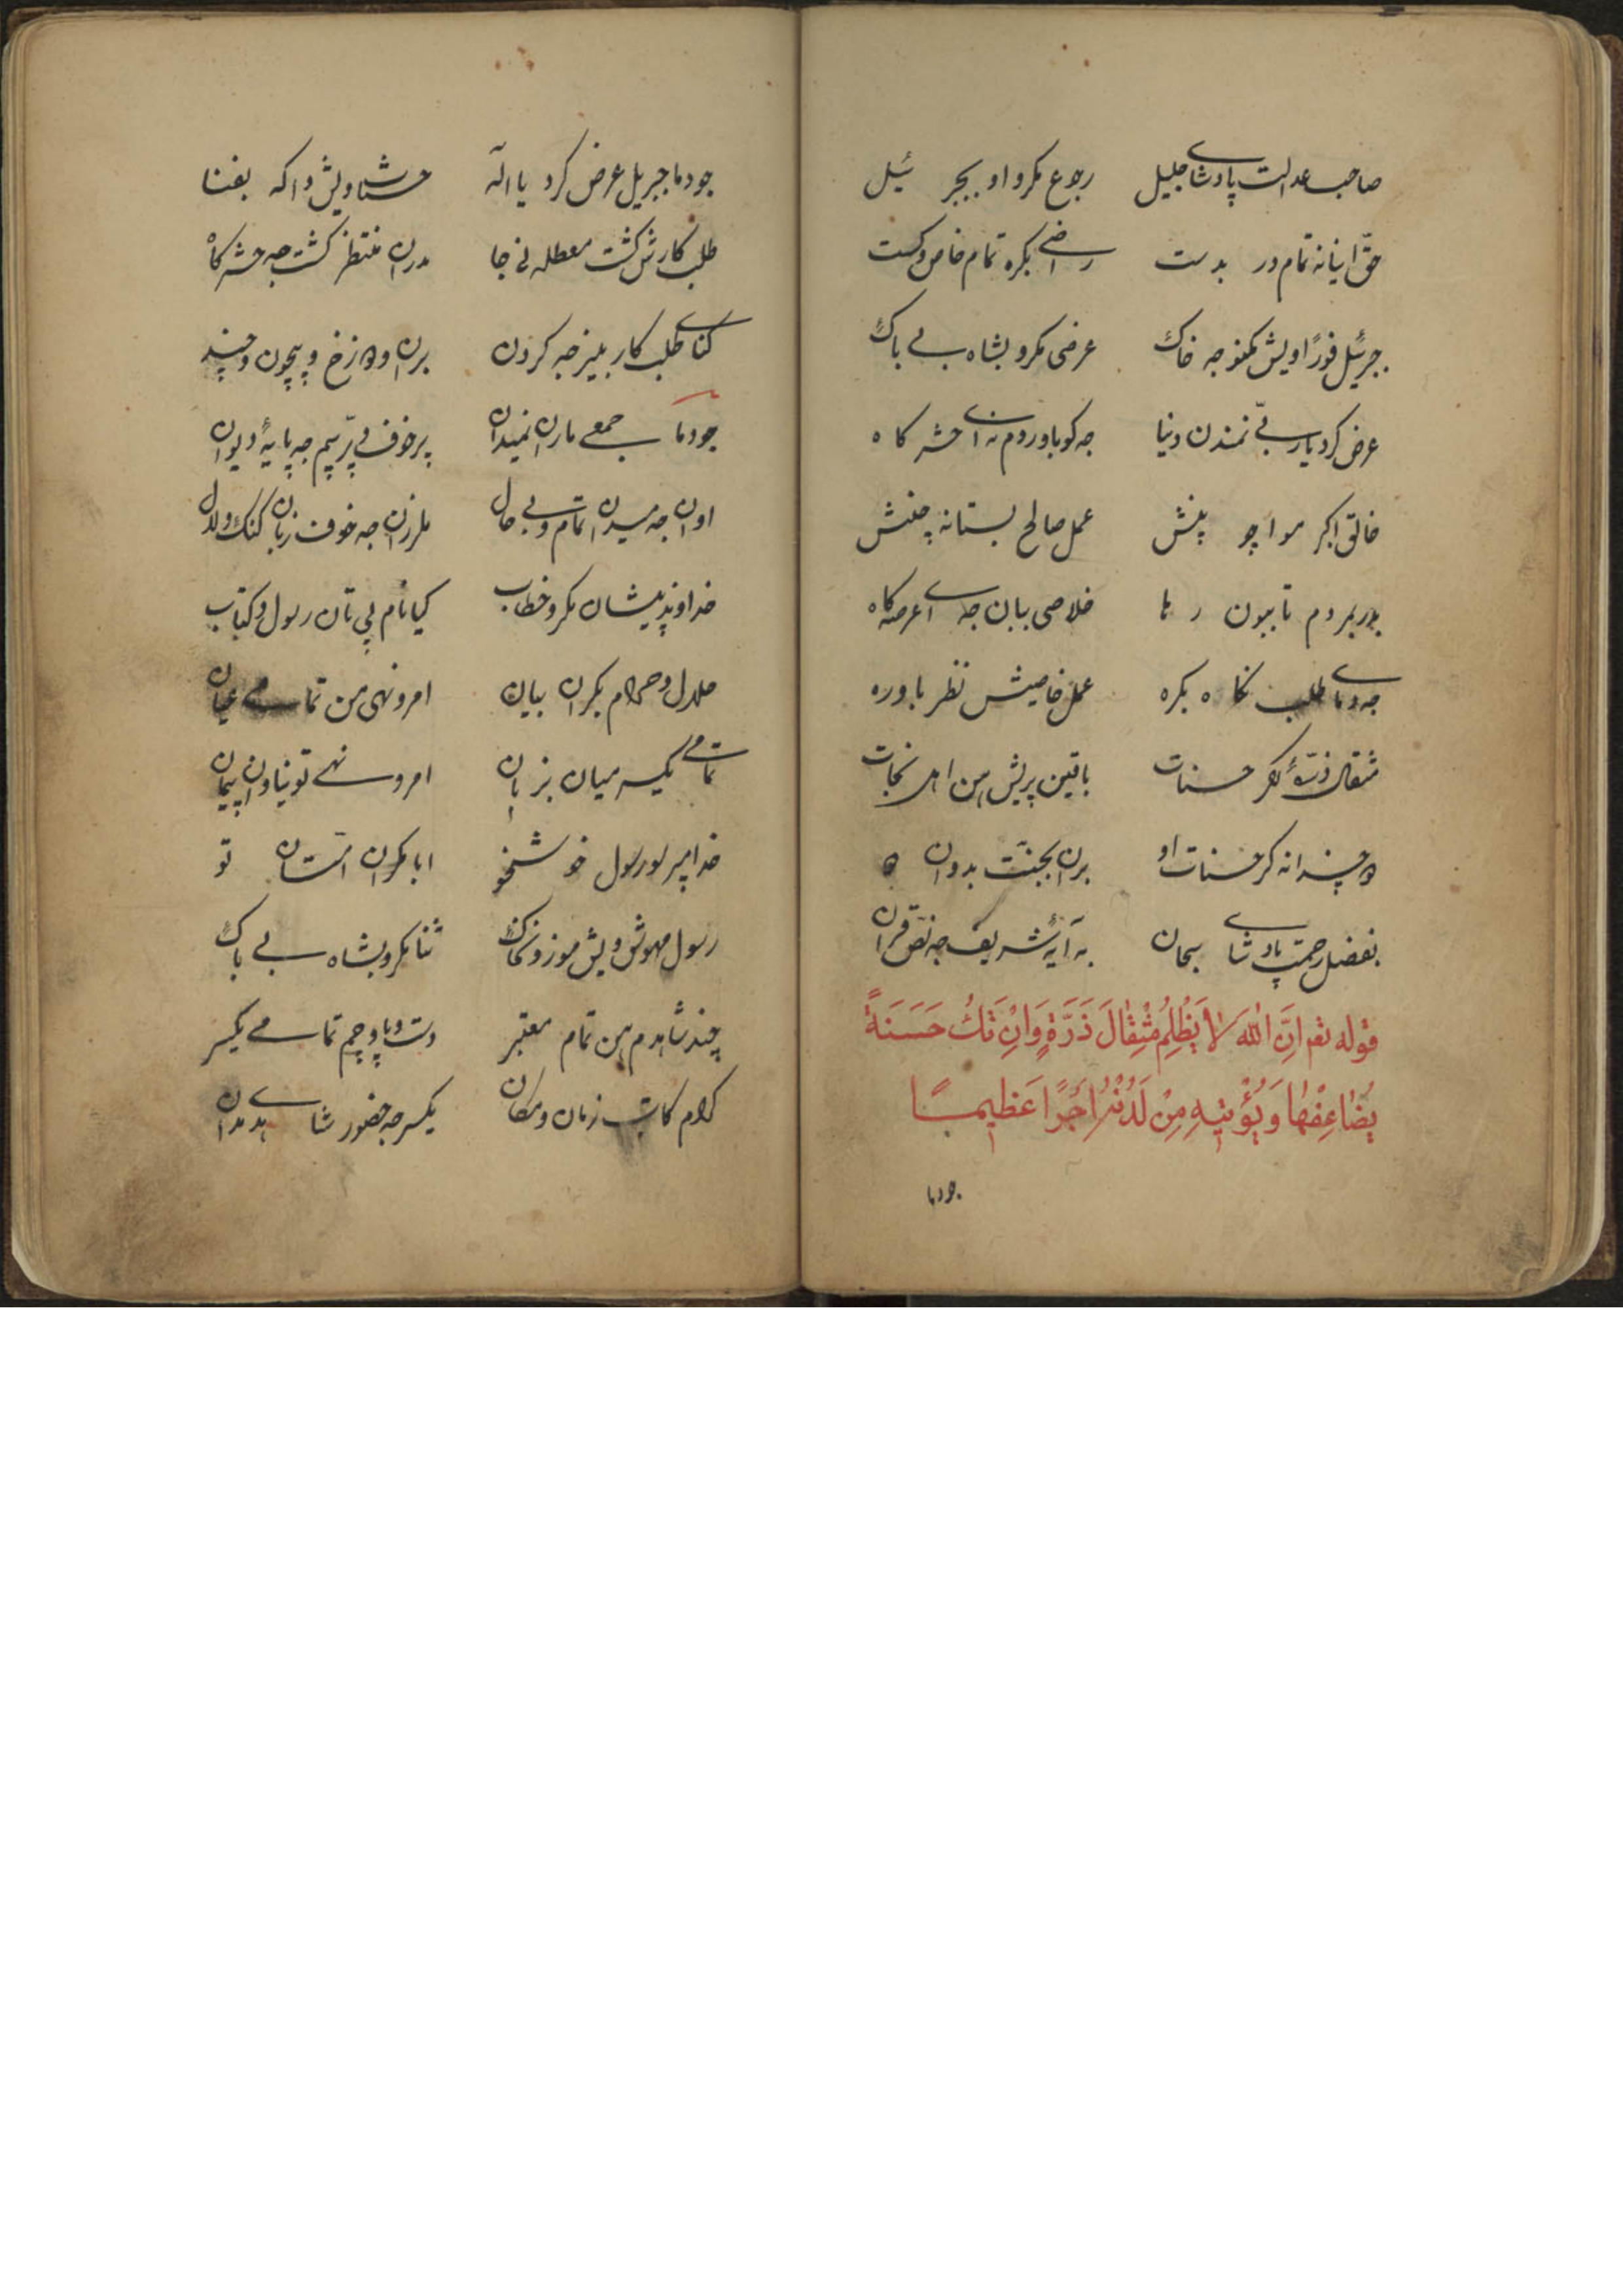 صاحب عدالت پادشای جلیل رجوع مکرو او بجبرئیل
حق ایانه تمام در بدست راضی بکره تمام خاص و کست
جبرئیل فورًا ویش مکنو جه خاک عرضی مکرو بشاه بی باک
عرض کرد یا ربی نمندن دنیا جه کو باوروم نه ای حشرکاه
خالق اکبر مواچو پیش عمل صالح بستانه چنش
بوربردم تا ببون رها خلاصی بیان جه ای عرصه‌کاه
جه دمای طلب نکاه بکره عمل خاصیش نظر باوره
مثقال ذرّهٔ کر حسنات باقین پریش من اهل نجات
ده چندانه کر حسنات او بران بجنّت بدوان
بفضل رحمت پادشای سبحان به آیهٔ شریف جه نصّ قران
قوله تعم اِنَّ اللّٰه لاَ یَظْلِمُ مِثْقَالَ ذَرَّةٍ وَاِنْ تَكُ حَسَنَةً
یُضَاعِفْهَا وَیُؤْتِیهِ مِنْ لَدُنْهُ اَجْرًا عَظِیمًا
جودما
جودما جبریل عرض کرد یا اله حسناویش واکه بفنا
طلب کارش کشت معطله نی جا مدران منتظر کشت جه حشرکاه
کنای طلب کار بنیز جه کردن بران و دوزخ و بیچون و چند
جودما جمعی ماران نمیدان پرخوف و پرّ بیم جه پایهٔ دیوان
اوان جه میدان تمام و بی حال ملرزان جه خوف زبان کنک و لال
خداوند پیشان مکرو خطاب کیانام پی تان رسول و کتاب
حلال و حرام بکران بیان امر و نهی من تمامی عیان
تمامی یکسر میان بزبان امر و نهی تو نیاوان پیمان
خدا پیر لو رسول خوشخو ابا مکران امتان تو
رسول مهوش ویش موزو نه خاک ثنا مکرو بشاه بی باک
چند شاهدم هن تمام معتبر دست و پا و چم تمامی یکسر
کرام کاتب زمان و مکان یکسر جه حضور شاهدی مدان